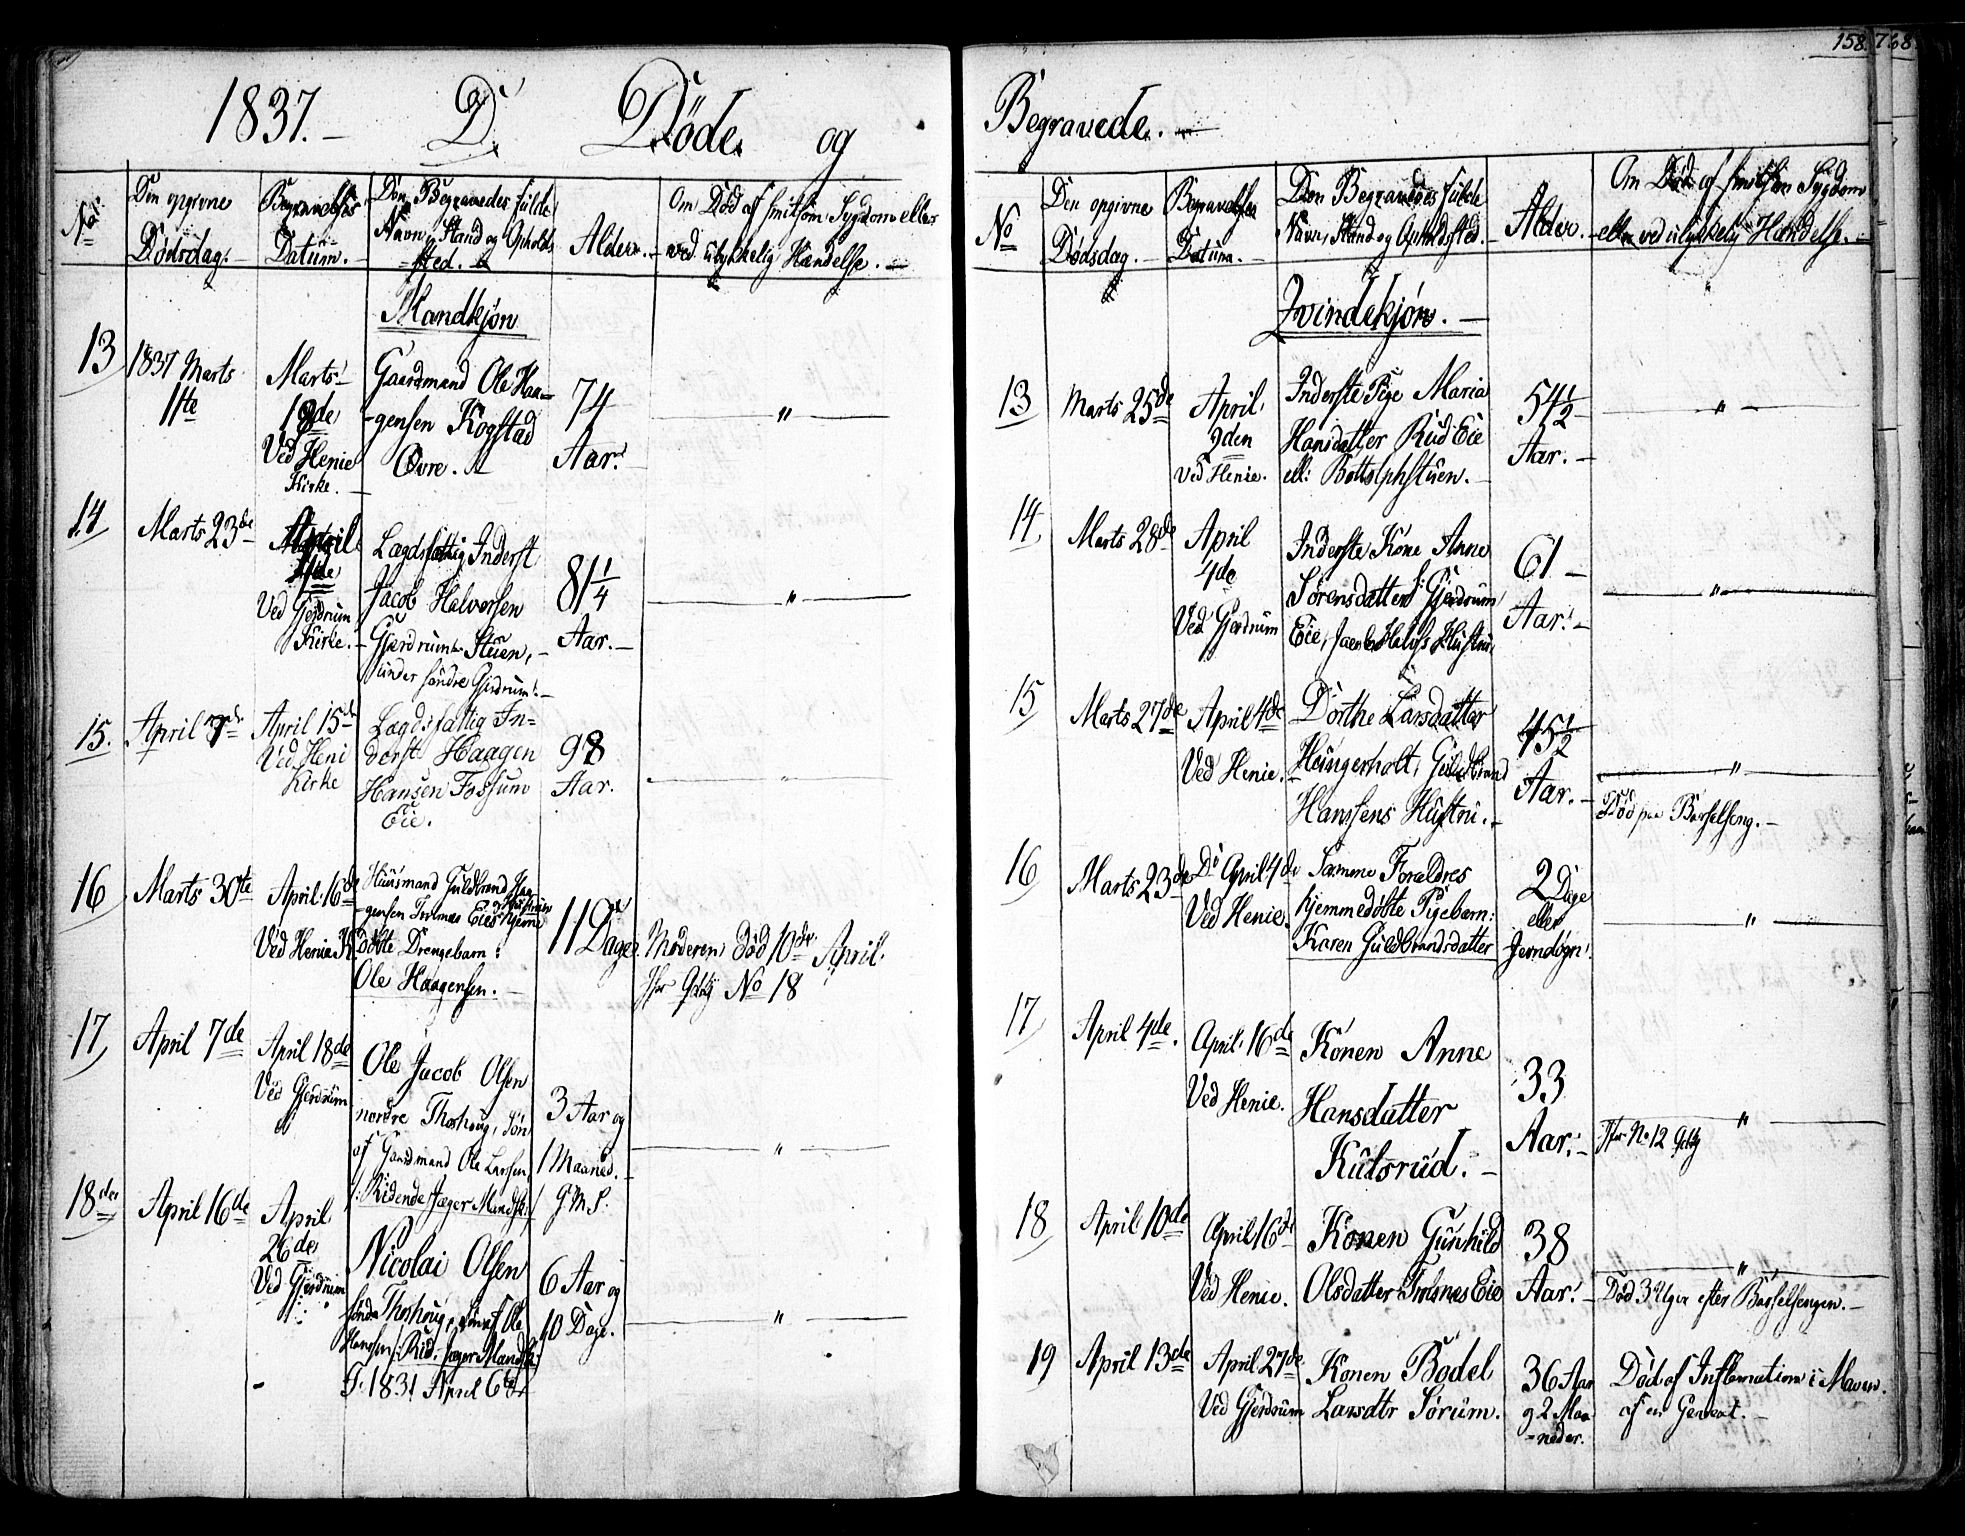 1837. D. Døde og
No
Den opgivne
Dødsdag.
Begravelses
Datum.
Den Begravedes fulde
Navn, Stand og Opholds
sted.
Alder.
Om Død af smitsom Sygdom eller
ved ulykkelig Hændelse.
Mandkjøn
13
1837 Marts
11te
Marts
18de
Ved Henie
Kirke.
Gaardmand Ole Haa-
gensen Kogstad
Øvre.
74
Aar.
"
14
Marts 23de
April
Ved Gjerdrum
Kirke.
Lægdsfattig Inderst
Jacob Halvorsen
Gjerdrum Stuen,
under søndre Gjerdrum.
81 1/4
Aar.
"
15.
April 7de
April 15de
Ved Heni
Kirke
Lægdsfattig In-
derst Haagen
Hansen Fossum
Eie.
98
Aar.
"
16
Marts 30te
April 16de
Ved Henie K.
Huusmand Guldbrand Haa-
gensen Eies hjemme
døbte Drengebarn:
Ole Haagensen.
11 Dage.
Moderen Død 10de April.
No 18
17
April 7de
April 18de
Ved Gjerdrum
Ole Jacob Olsen
nordre Thorshoug, Søn
af Gaardmand Ole Larsen
Ridende Jæger Mandsk.
3 Aar og
1 Maaned.
9 M S.
"
18de
April 16de
April
26de
Ved Gjerdrum
Nicolai Olsen
søndre Thorshoug, Søn af Ole
Hansen Rid. Jæger Mandsk
F. 1831 April 6te
6 Aar og
10 Dage.
"
158.
768
Begravede.
No
Den opgivne
Dødsdag.
Begravelses
Datum.
Den Begravedes fulde
Navn, Stand og Opholdssted.
Alder.
Om Død af smitsom Sygdom
eller ved ulykkelig Hændelse.
Qvindekjøn.
13
Marts 25de
April
9den
Ved Henie.
Inderste Pige Maria
Hansdatter Rud Eie
ell: Bottolphstuen.
54 1/2
Aar.
"
14
Marts 28de
April
4de
Ved Gjerdrum
Inderste Kone Anne
Sørensdatter Gjerdrum
Eie, Jacob Halvs Hustru.
61
Aar.
"
15
Marts 27de
April 4de
Ved Henie.
Dorthe Larsdatter
Hungerholt, Guldbrand
Hanssens Hustru.
45 1/2
Aar.
"
Død paa Barselseng.
16
Marts 23de
Do April 4de
Ved Henie.
Samme Forældres
hjemmedøbte Pigebarn:
Karen Guldbrandsdatter
2 Dage
eller
Jevndøgn.
"
17
April 4de.
April 16de
Ved Henie.
Konen Anne
Hansdatter
Kulsrud.
33
Aar.
"
No 12
18
April 10de
April 16de
Ved Henie.
Konen Gunhild
Olsdatter Eie
38
Aar.
"
Død 3 Uger efter Barselsengen.
19
April 13de
April 27de
Ved Gjerdrum
Konen Bodel
Larsdtr Sørum.
36 Aar
og 2 Maa
neder.
Død af Inflamation i Maven.